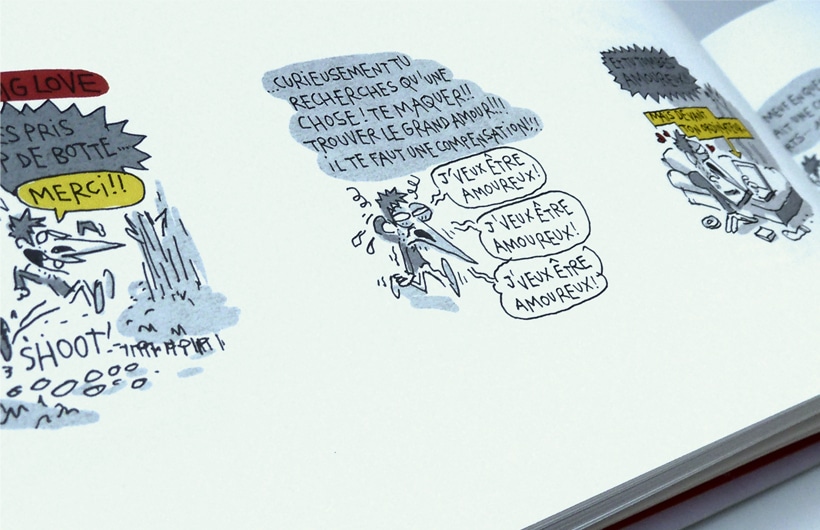 NG LOVE
ES PRIS
P DE BOTTE...
MERCI!!
SHOOT!
...CURIEUSEMENT TU
RECHERCHES QU'UNE
CHOSE! TE MAQUER!!
TROUVER LE GRAND AMOUR!!!
IL TE FAUT UNE COMPENSATION!!!
J'VEUX ÊTRE
AMOUREUX!
J'VEUX ÊTRE
AMOUREUX!
J'VEUX ÊTRE
AMOUREUX!
ET TU TOMBES
AMOUREUX!
MAIS DEVANT
TON ORDINATEUR
MENT EN
AIT UNE